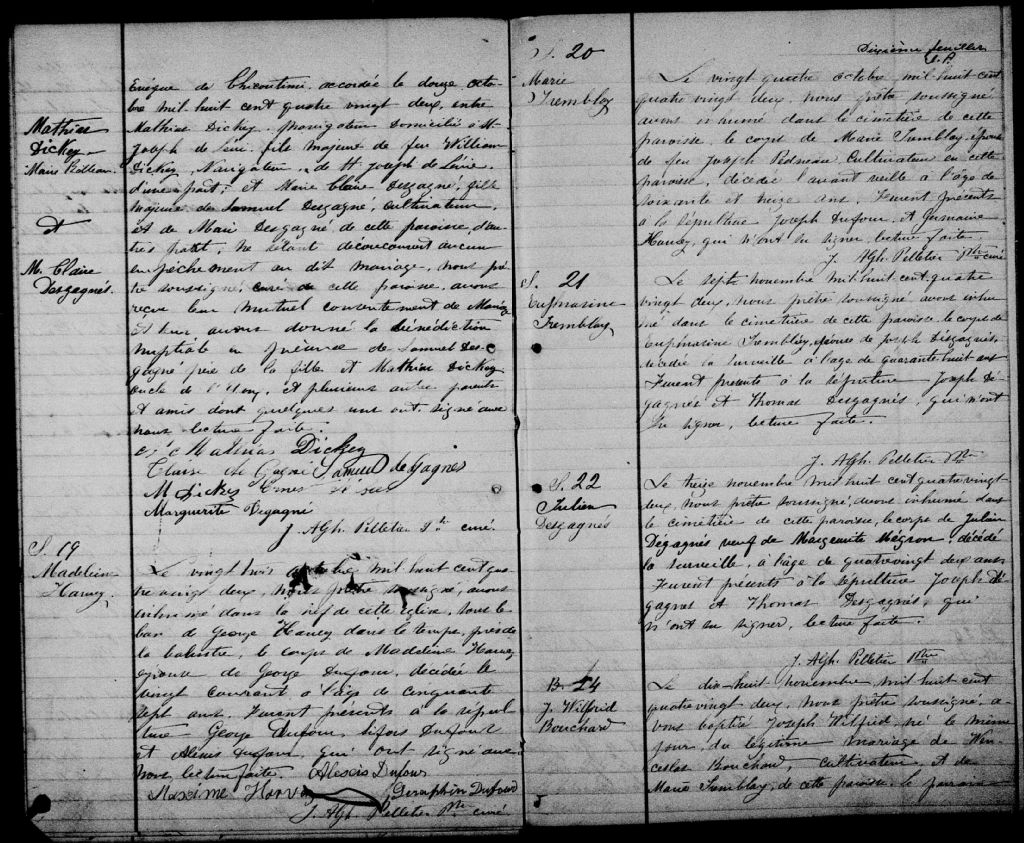 Mathias
Dickey
et
M. Claire
Desgagnés.
Evêque de Chicoutimi accordée le douze octo-
bre mil huit cent quatre vingt deux, entre
Mathias Dickey, navigateur domicilié à St
Joseph de Lévi, fils majeur de feu William
Dickey, Navigateur, de St Joseph de Lévis,
d'une part; et Marie Claire Desgagné, fille
majeure de Samuel Desgagné, cultivateur,
et de Marie Desgagné, de cette paroisse, d'au-
tres part, ne s'étant découvert aucun
empêchement au dit mariage, nous prê-
tre soussigné, curé de cette paroisse, avons
reçu leur mutuel consentement de Mariage
et leur avons donné la bénédiction
nuptiale en présence de Samuel Des-
gagné père de la fille et Mathias Dickey
oncle de l'époux, et plusieurs autres parents
et amis dont quelques uns ont signé avec
nous lecture faite.
Mathias Dickey
Claire de Gagné Samuel de Gagnés
M Dickey
Marguerite Degagné
J. Alph. Pelletier Ptre curé
S. 19
Madeleine
Harvey
Le vingt trois octobre mil huit cent qua-
tre vingt deux, nous prêtre soussigné, avons
inhumé dans la nef de cette église, sous le
banc de George Harvey dans le temps, près de
la balustre, le corps de Madeleine Harvey
épouse de George Dufour, décédée le
vingt courant à l'âge de cinquante
sept ans. Furent présents à la sépul-
ture George Dufour, Dufour
et Alexis Dufour qui ont signé avec
nous, lecture faite. Alexis Dufour
Maxime Harvey Seraphin Dufour
J. Alph. Pelletier Ptre curé
Dixième feuillet
S. 20
Marie
Tremblay
Le vingt quatre octobre mil huit cent
quatre vingt deux, nous prêtre soussigné
avons inhumé dans le cimetière de cette
paroisse le corps de Marie Tremblay, épouse
de feu Joseph Pedneau cultivateur en cette
paroisse, décédée l'avant veille à l'âge de
soixante et treize ans. Furent présents
à la sépulture Joseph Dufour, et Germain
Harvey, qui n'ont su signer, lecture faite.
J. Alph. Pelletier Ptre curé
S. 21
Euphrasine
Tremblay
Le sept novembre mil huit cent quatre
vingt deux, nous prêtre soussigné avons inhu-
mé dans le cimetière de cette paroisse le corps de
Euphrasine Tremblay, épouse de Joseph Desgagnés,
décédée la surveille à l'âge de quarante huit ans
Furent présents à la sépulture Joseph Dé-
gagnés et Thomas Desgagnés, qui n'ont
su signer, lecture faite.
J. Alph. Pelletier Ptre
S. 22
Julien
Desgagnés
Le treize novembre mil huit cent quatre vingt
deux, nous prêtre soussigné, avons inhumé dans
le cimetière de cette paroisse, le corps de Julien
Dégagnés veuf de Marguerite Mégron, décédé
la surveille, à l'âge de quatre vingt deux ans
Furent présents à la sépulture Joseph Dé-
gagnés et Thomas Desgagnés, qui
n'ont su signer, lecture faite.
J. Alph. Pelletier Ptre
B. 24
J. Wilfrid
Bouchard
Le dix-huit novembre mil huit cent
quatre vingt deux, nous prêtre soussigné, a-
vons baptisé Joseph Wilfrid, né le même
jour, du légitime mariage de Wen-
ceslas Bouchard, cultivateur, et de
Marie Tremblay, de cette paroisse, le parrain